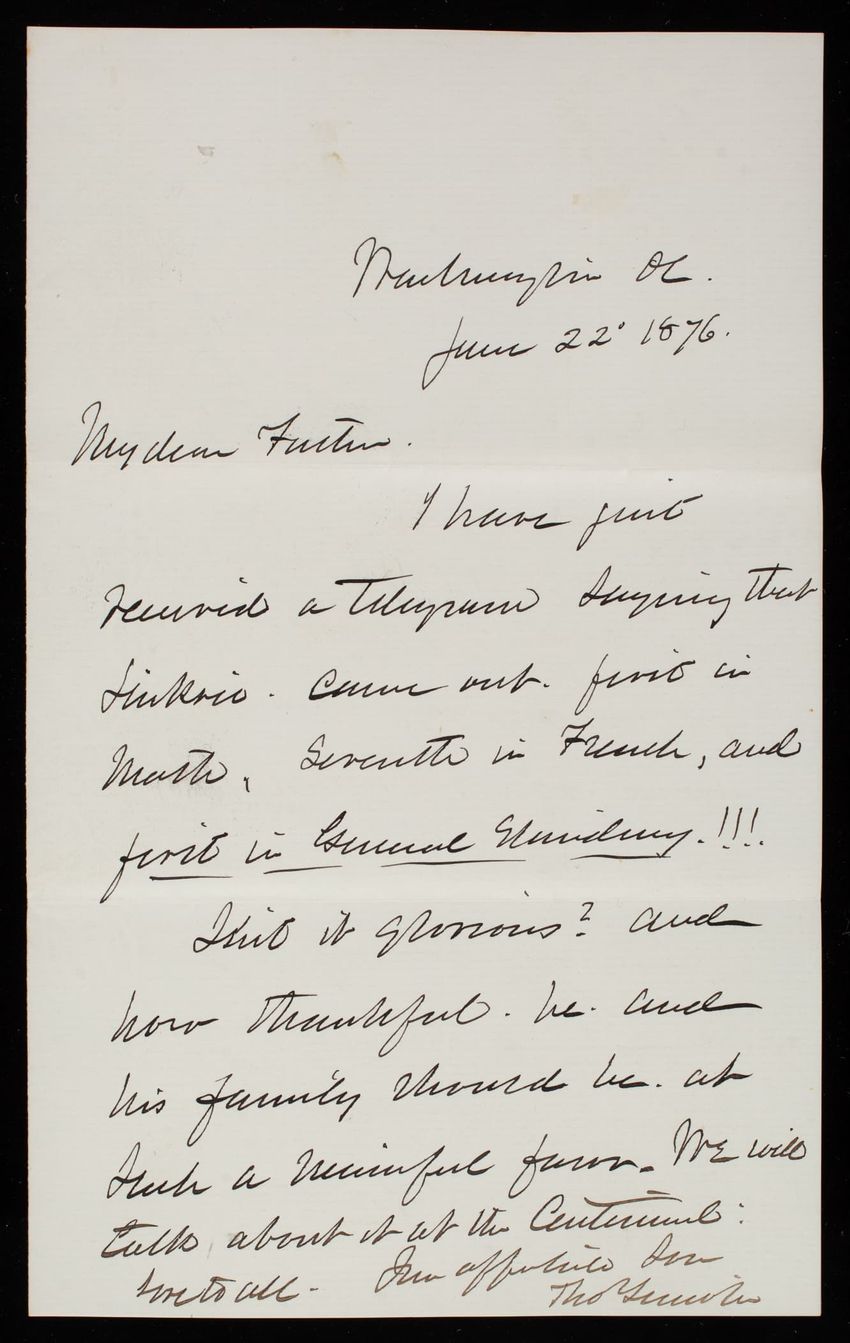 Washington DC.
June 22d 1876.
My dear Father.
I have just
received a telegram saying that
came out first in
Math, Seventh in French, and
first in General Standing.!!!
Isn't it glorious? and
how thankful. he. and
his family should be. at
Such a merciful favor. We will
talk about it at the Centennial.
Love to all. Son
Thos Lincoln